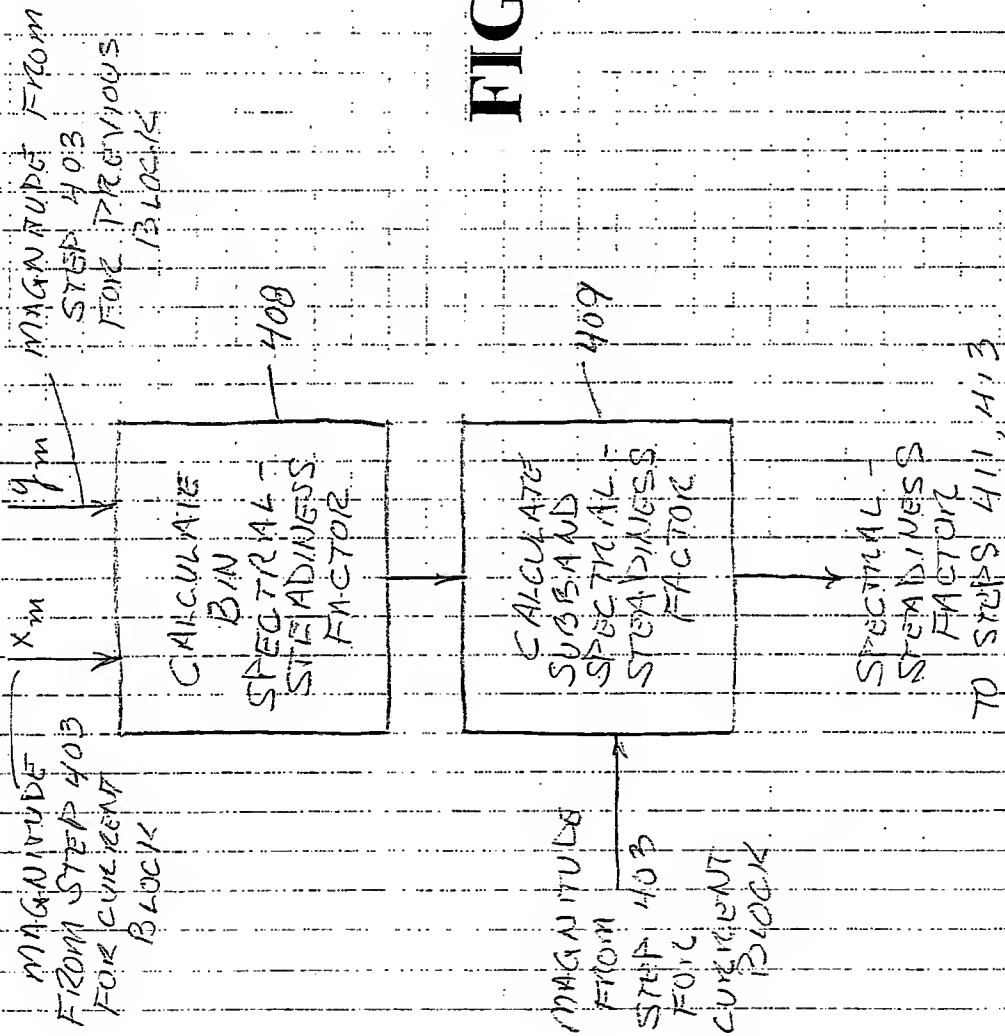 MAGNITUDE
FROM STEP 403
FOR CURRENT
BLOCK
x m
y m
MAGNITUDE FROM
STEP 403
FOR PREVIOUS
BLOCK
CALCULATE
BIN
SPECTRAL-
STEADINESS
FACTOR
408
MAGNITUDE
FROM
STEP 403
FOR
CURRENT
BLOCK
CALCULATE
SUBBAND
SPECTRAL-
STEADINESS
FACTOR
409
SPECTRAL-
STEADINESS
FACTOR
TO STEPS 411, 413
FIG